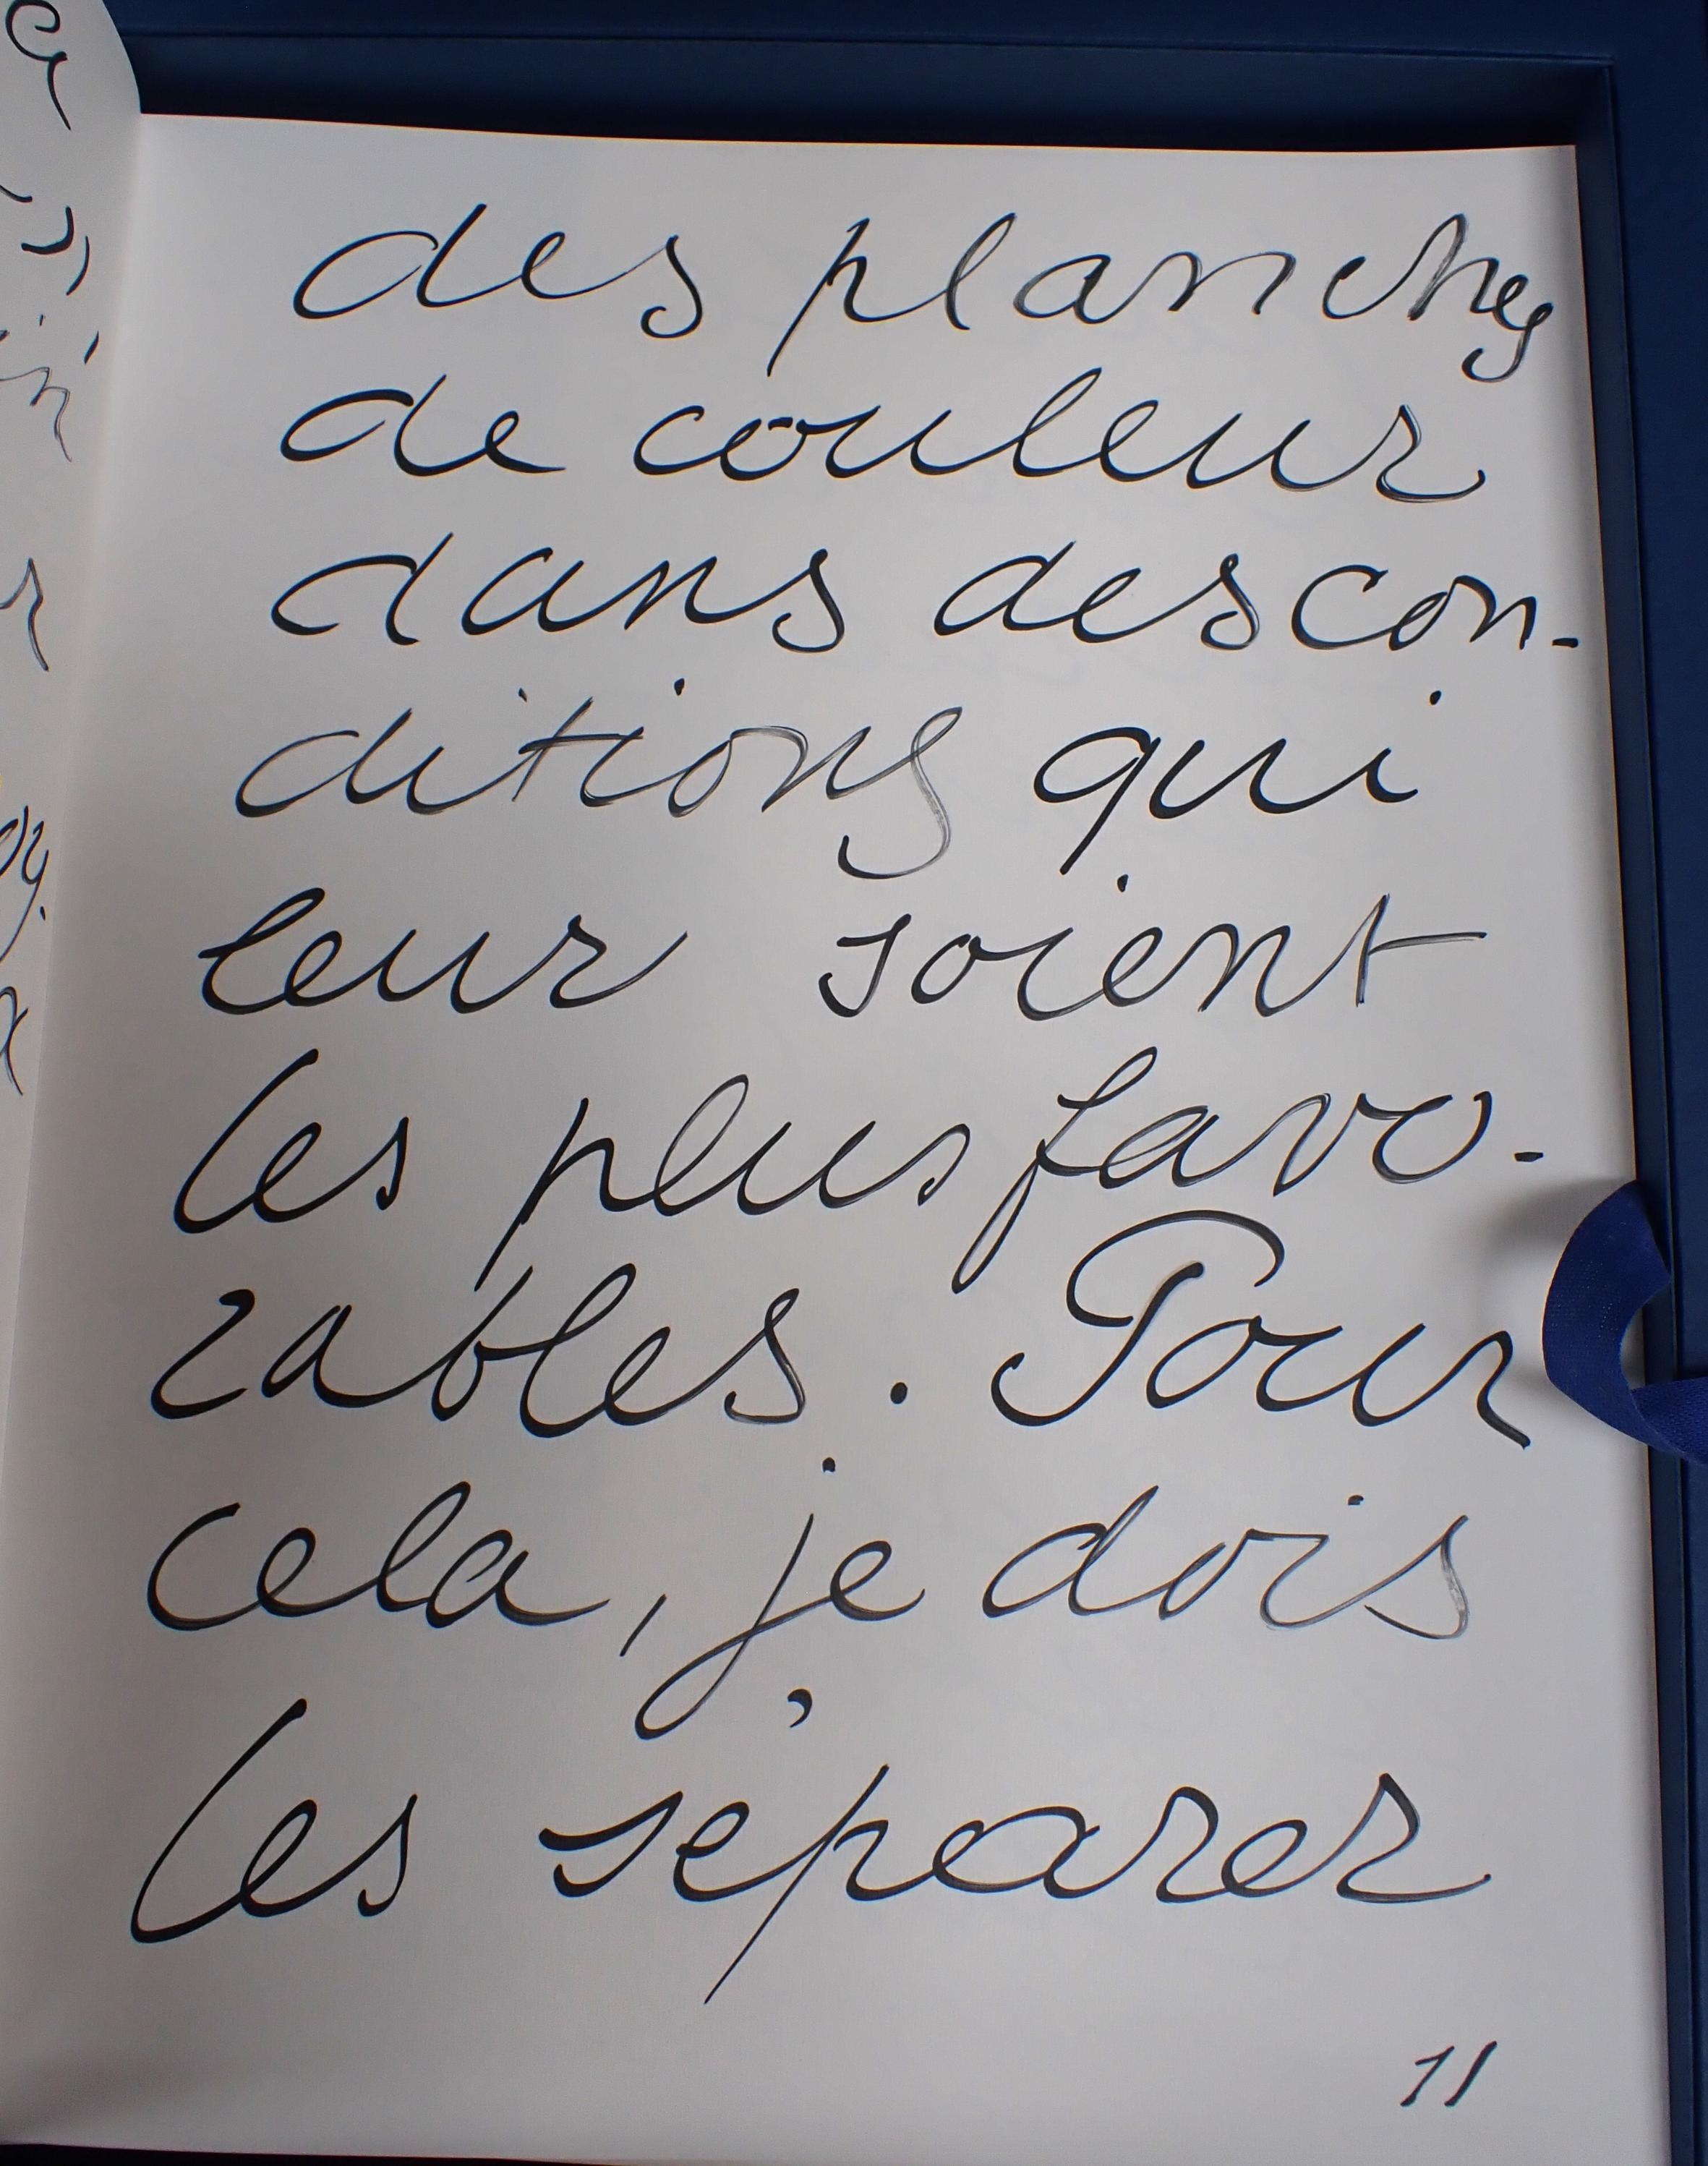 des planches
de couleur
dans des con-
ditions qui
leur soient
les plus favo-
rables. Pour
cela, je dois
les séparer
11